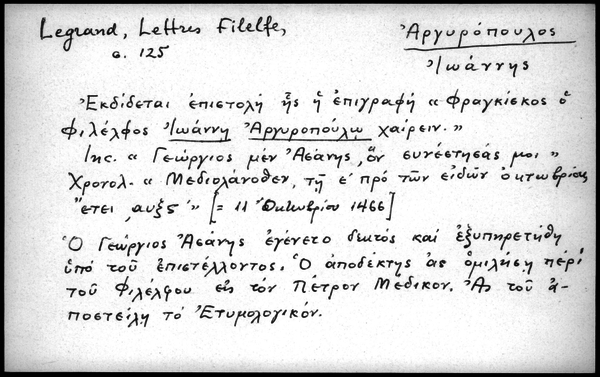 Legrand, Lettres Filelfe,
σ. 125
Ἀργυρόπουλος
Ἰωάννης
Ἐκδίδεται ἐπιστολή ἧς ἡ ἐπιγραφή « Φραγκίσκος ὁ
Φιλέλφος Ἰωάννῃ Ἀργυροπούλῳ χαίρειν. »
Inc. « Γεώργιος μέν Ἀσάνης, ὅν συνέστησάς μοι »
Χρονολ. « Μεδιολάνοθεν, τῇ ε΄ πρό τῶν εἰδῶν ὀκτωβρίας
ἔτει ͵αυξς΄ » [= 11 Ὀκτωβρίου 1466]
Ὁ Γεώργιος Ἀσάνης ἐγένετο δεκτός καί ἐξυπηρετήθη
ὑπό τοῦ ἐπιστέλλοντος. Ὁ ἀποδέκτης ἄς ὁμιλήσῃ περί
τοῦ Φιλέλφου εἰς τόν Πέτρον Μέδικον. Ἄς τοῦ ἀ-
ποστείλῃ τό Ἐτυμολογικόν.